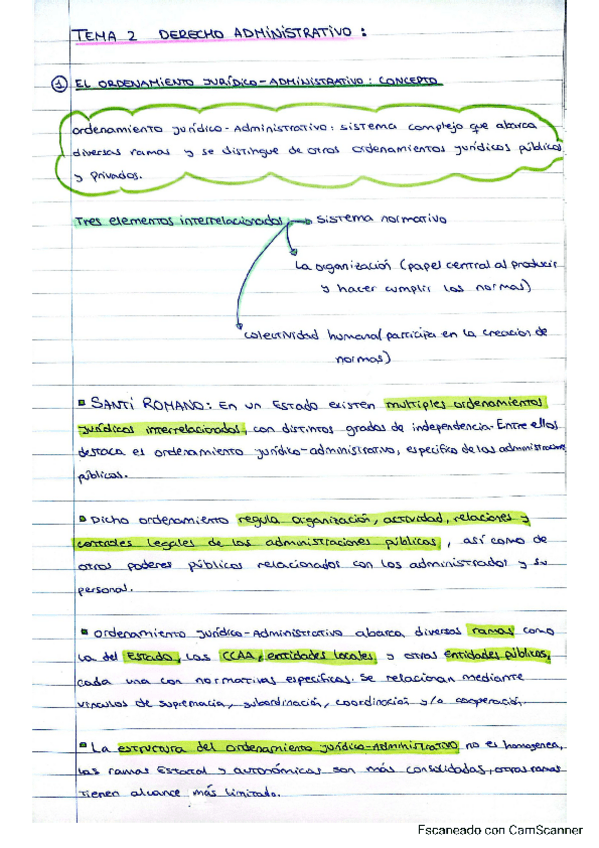 TEMA 2 DERECHO ADMINISTRATIVO :
① EL ORDENAMIENTO JURÍDICO-ADMINISTRATIVO : CONCEPTO
ordenamiento jurídico-Administrativo: sistema complejo que abarca
diversas ramas y se distingue de otros ordenamientos jurídicos públicos
y privados.
Tres elementos interrelacionados → sistema normativo
La organización (papel central al producir
y hacer cumplir las normas)
colectividad humana (participa en la creación de
normas)
SANTI ROMANO: En un Estado existen multiples ordenamientos
jurídicos interrelacionados, con distintos grados de independencia. Entre ellos
destaca es ordenamiento jurídico-administrativo, específico de las administraciones
públicas.
Dicho ordenamiento regula organización, actividad, relaciones y
controles legales de las administraciones públicas, así como de
otros poderes públicos relacionados con los administrados y su
personal.
ordenamiento jurídico-Administrativo abarca diversas ramas como
la del Estado, las CCAA, entidades locales y otras entidades públicas,
cada una con normativas específicas. Se relacionan mediante
vínculos de supremacia, subordinación, coordinación y/o cooperación.
La estructura del ordenamiento jurídico-Administrativo no es homogénea,
las ramas Estatal y autonómicas son más consolidadas, otras ramas
tienen alcance más limitado.
Escaneado con CamScanner